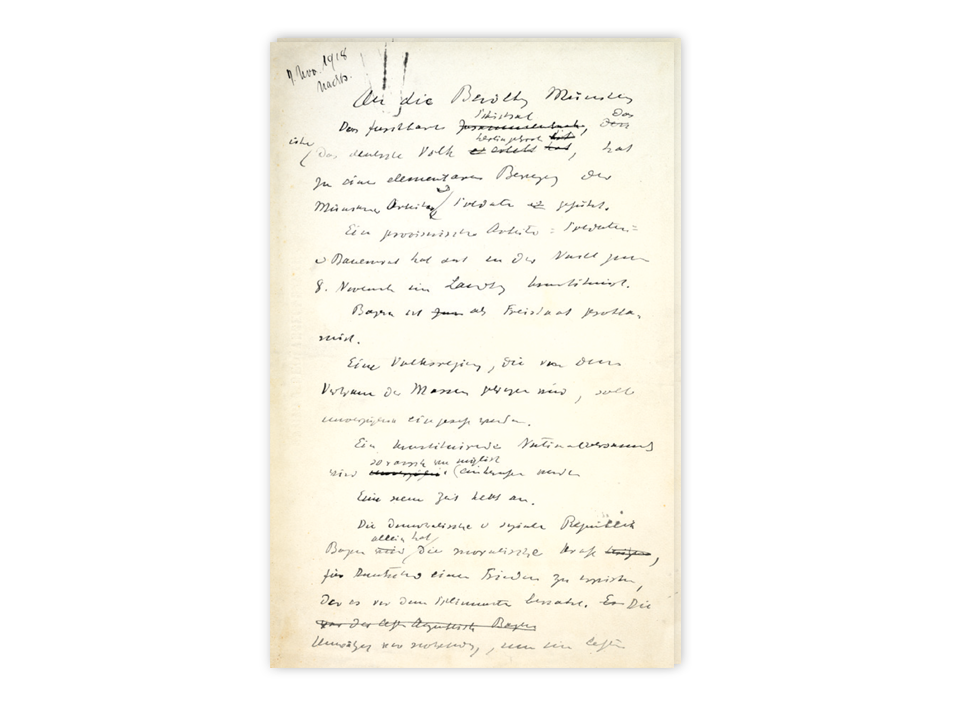 7. Nov. 1918
Nachts.
An die Bevölkg Münchens
Schicksal Das
Das furchtbare Zusammenbruch, Dass
hereingebrochen
das deutsche Volk hat, hat
zu einer elementaren Bewegg der
Münchner Arbeiter Soldaten geführt.
Ein provisorischer Arbeiter= Soldaten=
u Bauernrat hat sich in der Nacht zum
8. November im Landtg konstituiert.
Bayern ist als Freistaat prokla-
miert.
Eine Volksregierg, die von dem
Vertrauen der Massen getragen wird, soll
unverzüglich eingesetzt werden.
Eine konstituierende Nationalversammlg
so rasch wie möglich
wird einberufen werden
Eine neue Zeit hebt an.
Die demokratische u soziale Republik
allein hat
Bayern wird die moralische Kraft,
für Deutschld einen Frieden zu erwirken,
der es vor dem Schlimmsten bewahrt. Die
Umwälzg war notwendig, um im letzten